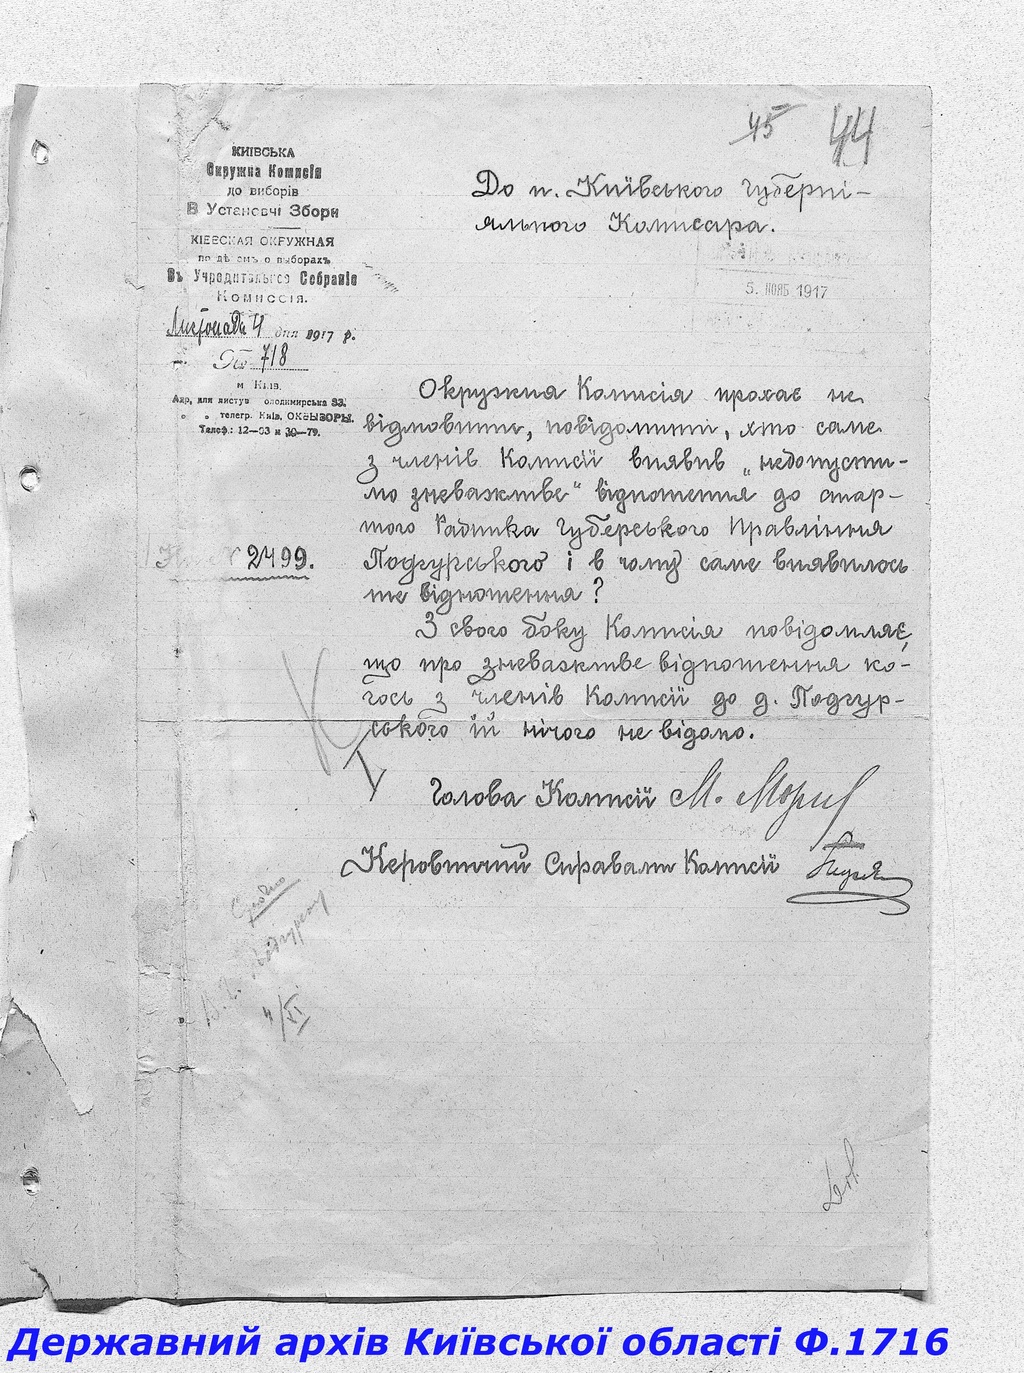 45
44
КИЇВСЬКА
Окружна Комисія
до виборів
В Установчі Збори
КІЕВСКАЯ ОКРУЖНАЯ
по дѣламъ о выборахъ
Въ Учредительное Собраніе
Комиссія.
Листопада 4 дня 1917 р.
№ 718
м Київ.
Адр. для листув олодимирська 33.
телегр. Київ. ОКВЫБОРЫ.
Телеф.: 12—03 и 30—79.
До п. Київського Губерні-
яльного Комисара.
5. НОЯБ 1917
Окружна Комісія прохає не
відмовити, повідомити, хто саме
з членів Комісії виявив „недопусти-
мо зневажливе" відношення до стар-
шого Радника Губерського Правління
Подгурського і в чому саме виявилось
те відношення?
2499.
З свого боку Комісія повідомляє,
що про зневажливе відношення ко-
гось з членів Комісії до д. Подгур-
ського їй нічого не відомо.
Голова Комісії М.
Керовничий Справами Комісії
4/XI
Державний архів Київської області Ф.1716